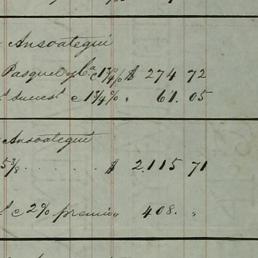 Ansoategui
Pasquel y Ca c 1¾% $ 274 72
c 1¾% " 61. 05
Ansoategui
5⅜ $ 2.115 71
c 2% premio " 408. "